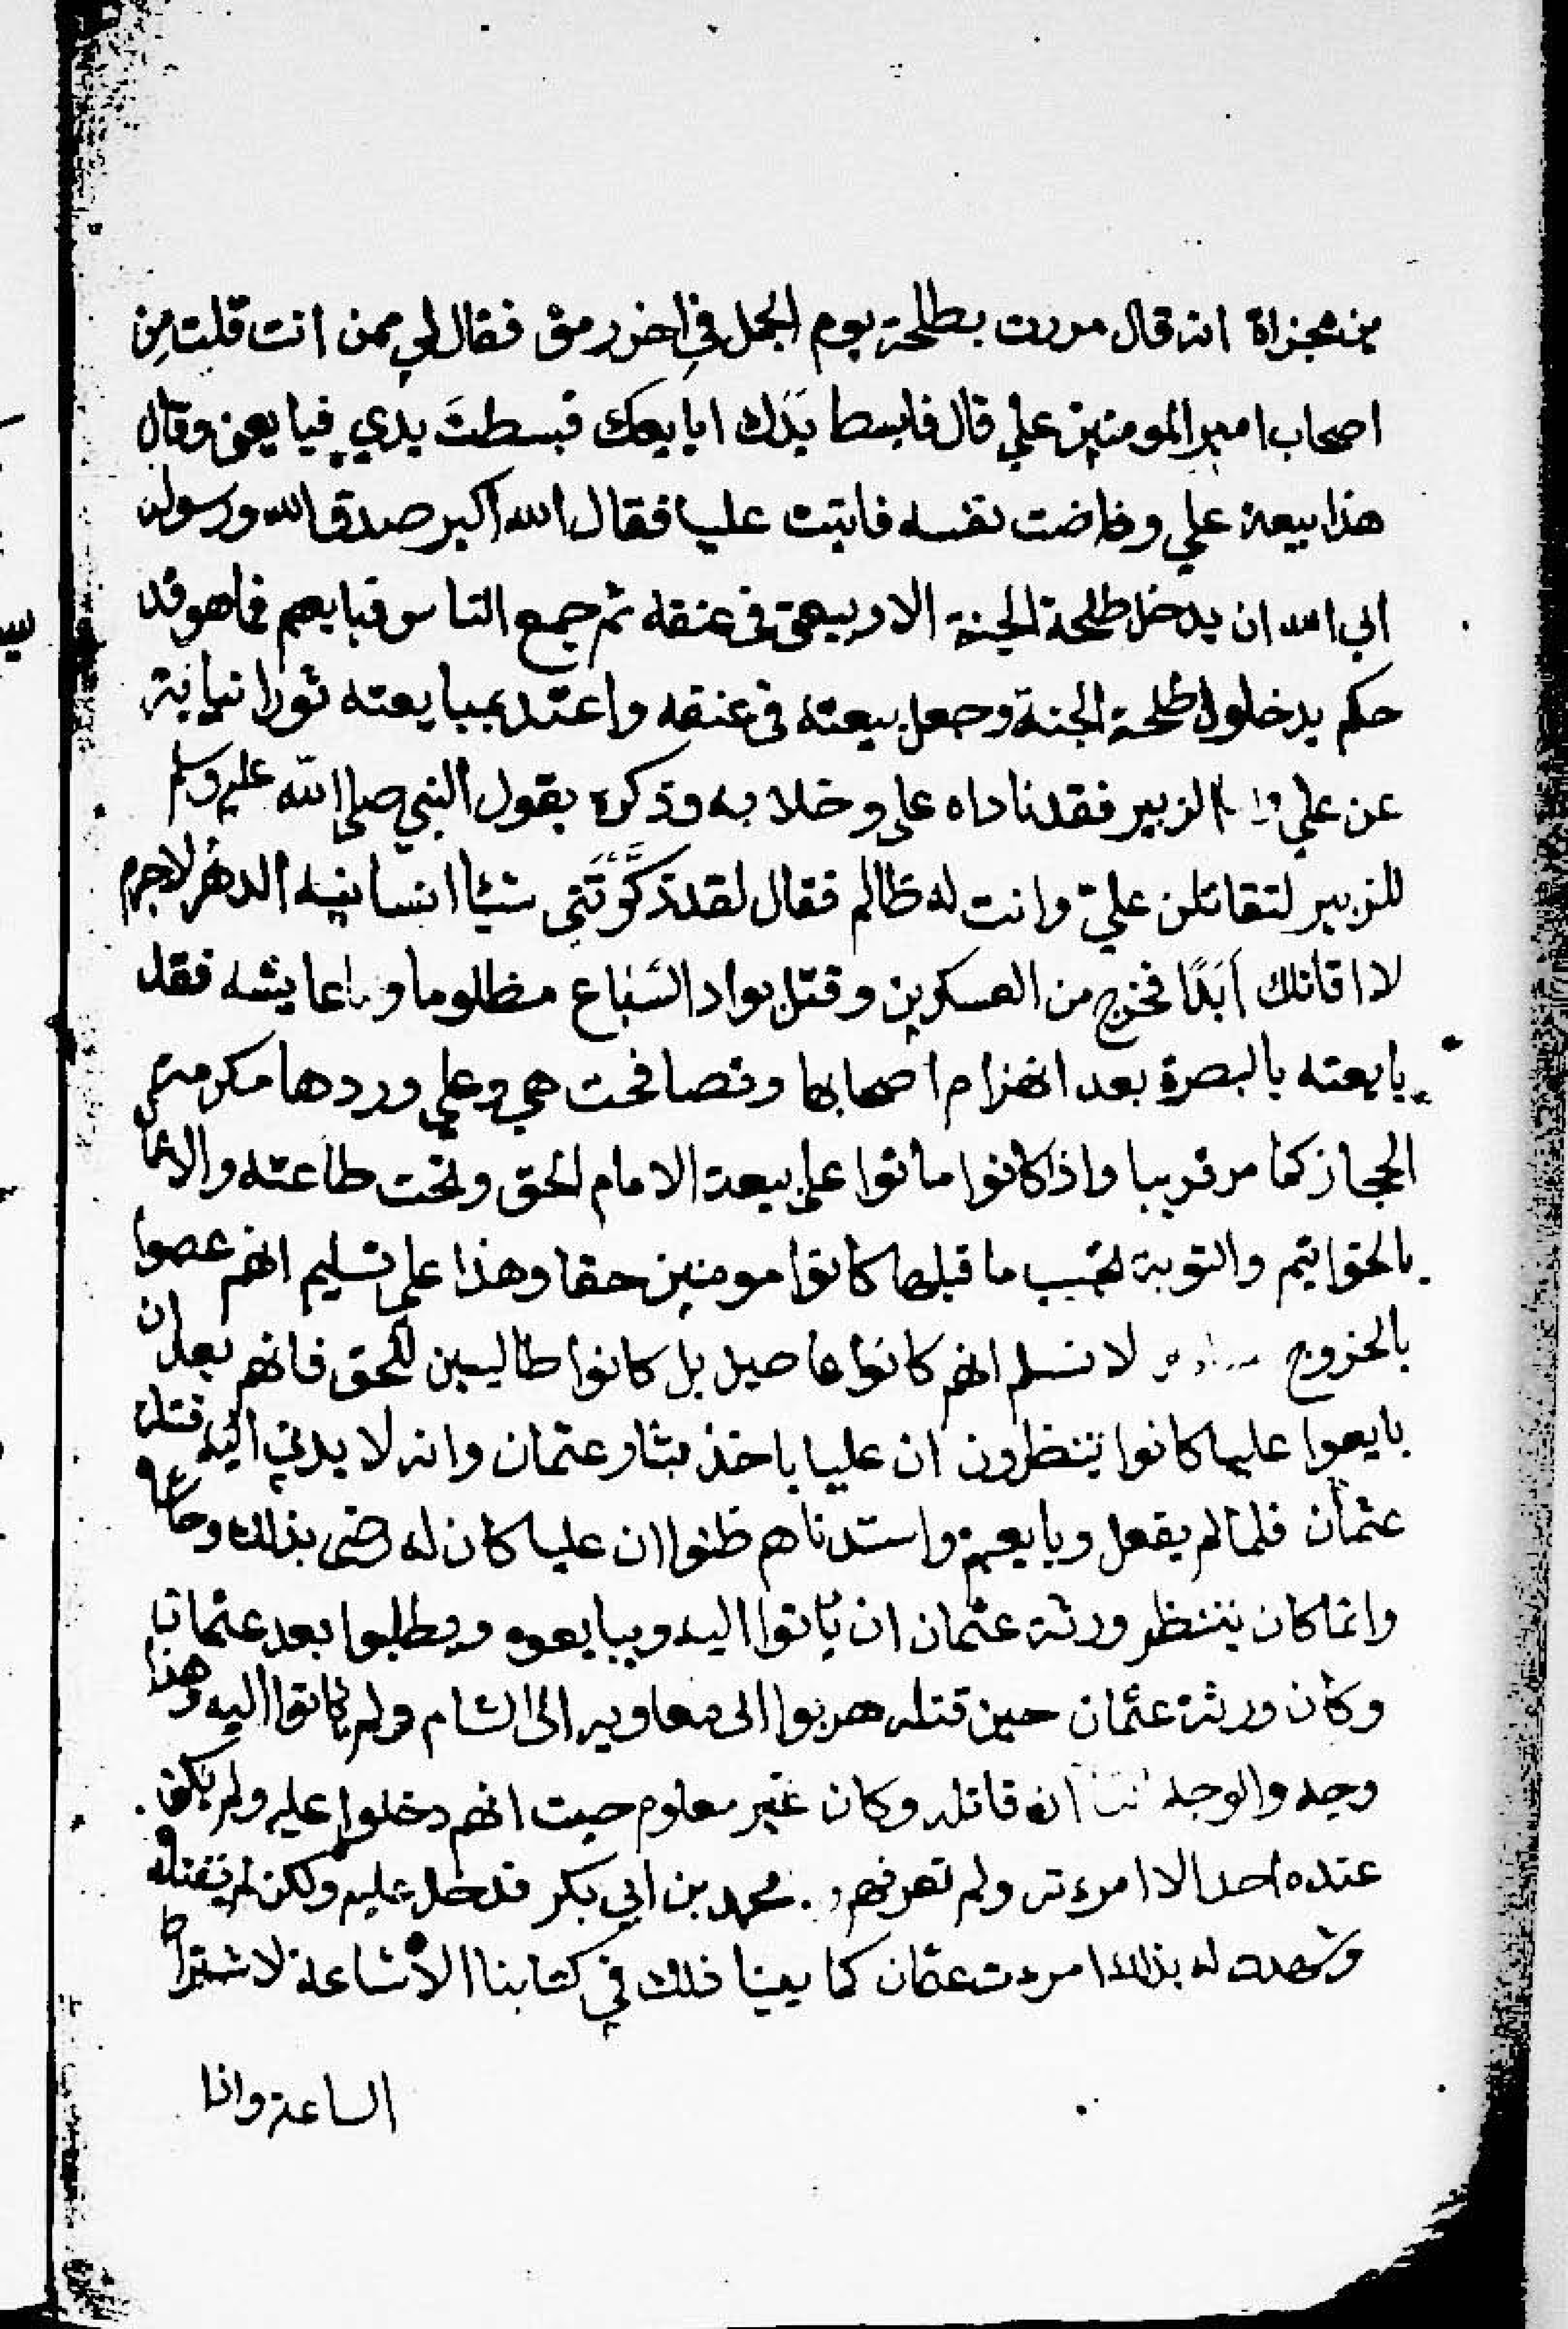 من مجزاة انه قال مررت بطلحة يوم الجمل في اخر رمق فقال لي ممن انت قلت من
اصحاب امير المومنين علي قال فابسط يدك ابايعك فبسطت يدي فبايعني وقال
هذا بيعة علي وفاضت نفسه فاتيت عليا فقال الله اكبر صدق الله ورسوله
ابى الله ان يدخل طلحة الجنة الا وبيعتي في عنقه ثم جمع الناس فبايعهم فما هو قد
حكم بدخلول طلحة الجنة وجعل بيعته في عنقه واعتد بمبايعته ثورا نيابة
عن علي الزبير فقد ناداه علي وخلا به وذكره بقول النبي صلى الله عليه وسلم
للزبير لتقاتلن علي وانت له ظالم فقال لقد ذكّرتني شيئا انسانيه الدهر لاجرم
لا اقاتلك ابدًا فخرج من العسكرين وقتل بواد السباع مظلوما واما عايشه فقد
بايعته بالبصرة بعد انهزام اصحابها وتصافحت هي وعلي وردها مكرمة الى
الحجاز كما مر قريبا واذا كانوا ماتوا على بيعة الامام الحق وتحت طاعته والاعما
بالخواتيم والتوبة تجب ما قبلها كانوا مومنين حقا وهذا على تسليم انهم عصوا
بالخروج لا نسلم انهم كانوا عاصيل بل كانوا طالبين للحق فانهم بعد ان
بايعوا عليها كانوا ينتظرون ان عليا ياخذ بثار عثمان وانه لا يدني اليه قتلة
عثمان فلما لم يفعل وبايعهم واستدناهم ظنوا ان عليا كان له رضى بذلك وحاشاه
وانما كان ينتظر ورثة عثمان ان ياتوا اليه ويبايعوه ويطلبوا بعد عثمان
وكان ورثة عثمان حين قتله هربوا الى معاويه الى الشام ولم ياتوا اليه وهذا
وجه والوجه ان قاتله وكان غير معلوم حيث انهم دخلوا عليه ولم يكن
عنده احد الا امرءته ولم تعرفهم محمد بن ابي بكر قد دخل عليه ولكن لم يقتله
وشهدت له بذلك امرءت عثمان كما بينا ذلك في كتابنا الأشاعة لاشتراط
الساعة وانا